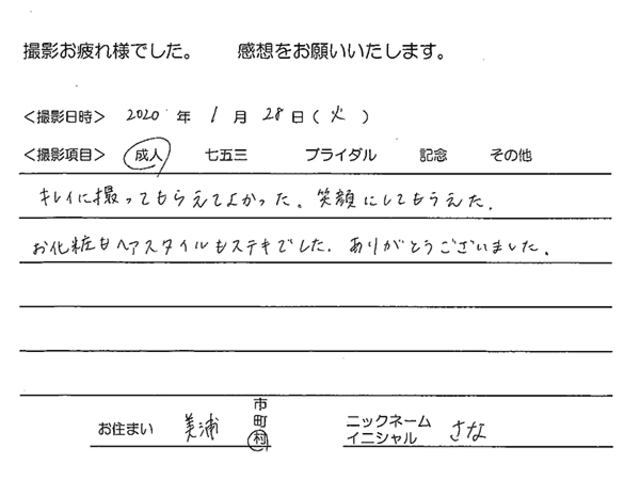 撮影お疲れ様でした。 感想をお願いいたします。
<撮影日時> 2020 年 1 月 28 日 ( 火 )
<撮影項目> 成人 七五三 ブライダル 記念 その他
キレイに撮ってもらえてよかった。笑顔にしてもらえた。
お化粧もヘアスタイルもステキでした。ありがとうございました。
お住まい 美浦 市 町 村
ニックネーム イニシャル さな